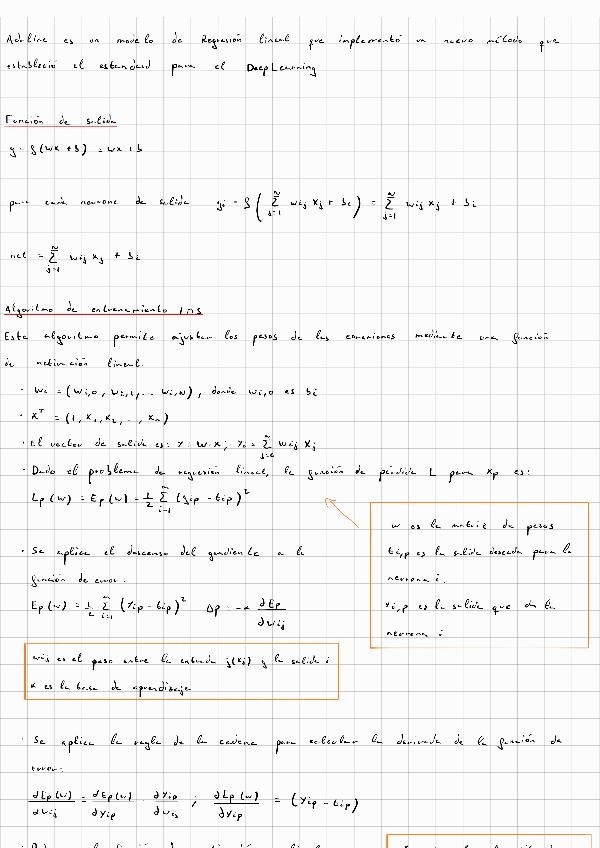 Adaline es un modelo de Regresión lineal que implementó un nuevo método que
estableció el estandard para el DeepLearning
Función de salida
y = f(wx + b) = wx + b
para cada neurona de salida yi = f( Σ_{j=1}^{N} wij xj + bi ) = Σ_{j=1}^{N} wij xj + bi
net = Σ_{j=1}^{N} wij xj + bi
Algoritmo de entrenamiento LMS
Este algoritmo permite ajustar los pesos de las conexiones mediante una función
de activación lineal.
· Wi = (Wi,0, Wi,1, ... Wi,N), donde wi,0 es bi
· X^T = (1, X1, X2, .., Xn)
· El vector de salida es: Y = W·X; Yi = Σ_{j=0}^{n} wij Xj
· Dado el problema de regresión lineal, la función de pérdida L para Xp es:
Lp(w) = Ep(w) = 1/2 Σ_{i=1}^{m} (yip - tip)^2
w es la matriz de pesos
ti,p es la salida deseada para la
neurona i.
yi,p es la salida que da la
neurona i
· Se aplica el descenso del gradiente a la
función de error:
Ep(w) = 1/2 Σ_{i=1}^{m} (Yip - tip)^2 Δp = -α ∂Ep/∂wij
wij es el peso entre la entrada j(xj) y la salida i
α es la tasa de aprendizaje
· Se aplica la regla de la cadena para calcular la derivada de la función de
error:
∂Ep(w)/∂wij = ∂Ep(w)/∂Yip · ∂Yip/∂wij ; ∂Ep(w)/∂Yip = (Yip - tip)